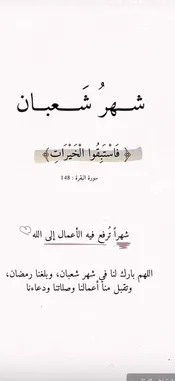 شهرُ شَعبان
﴿ فَاسْتَبِقُوا الْخَيْرَاتِ﴾
سورة البقرة : 148
شهراً تُرفع فيه الأعمال إلى الله
اللهم بارك لنا في شهر شعبان، وبلغنا رمضان،
وتقبل منا أعمالنا وصلاتنا ودعاءنا